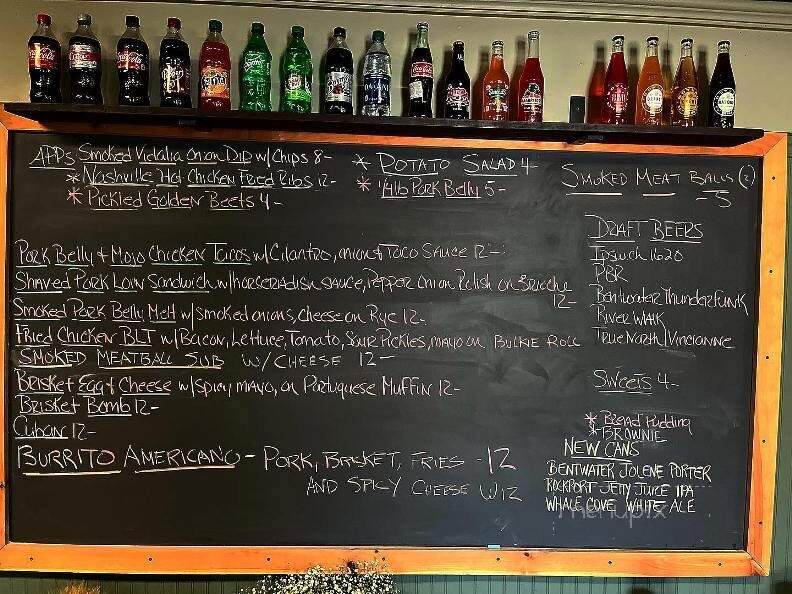 APPs Smoked Vidalia Onion Dip w/ Chips 8-
* Nashville Hot Chicken Fried Ribs 12-
* Pickled Golden Beets 4-
* POTATO SALAD 4-
* 1/4 lb Pork Belly 5-
SMOKED MEAT BALLS (2)
-5
Pork Belly & Mojo Chicken Tacos w/ Cilantro, onion & Taco Sauce 12-
Shaved Pork Loin Sandwich w/ horseradish sauce, Pepper onion Relish on Brioche
12-
Smoked Pork Belly Melt w/ smoked onions, cheese on Rye 12-
Fried Chicken BLT w/ Bacon, Lettuce, Tomato, Sour Pickles, mayo on BULKIE ROLL
SMOKED MEATBALL SUB W/ CHEESE 12-
Brisket Egg & Cheese w/ spicy mayo, on Portuguese Muffin 12-
Brisket Bomb 12-
Cuban 12-
BURRITO AMERICANO - PORK, BRISKET, FRIES - 12
AND SPICY CHEESE
DRAFT BEERS
Ipswich 1620
PBR
Bentwater Thunder Funk
River Walk
True North / Vincianne
Sweets 4-
* Bread Pudding
* BROWNIE
NEW CANS
BENTWATER JOLENE PORTER
ROCKPORT JETTY JUICE IPA
WHALE COVE WHITE ALE
menupix